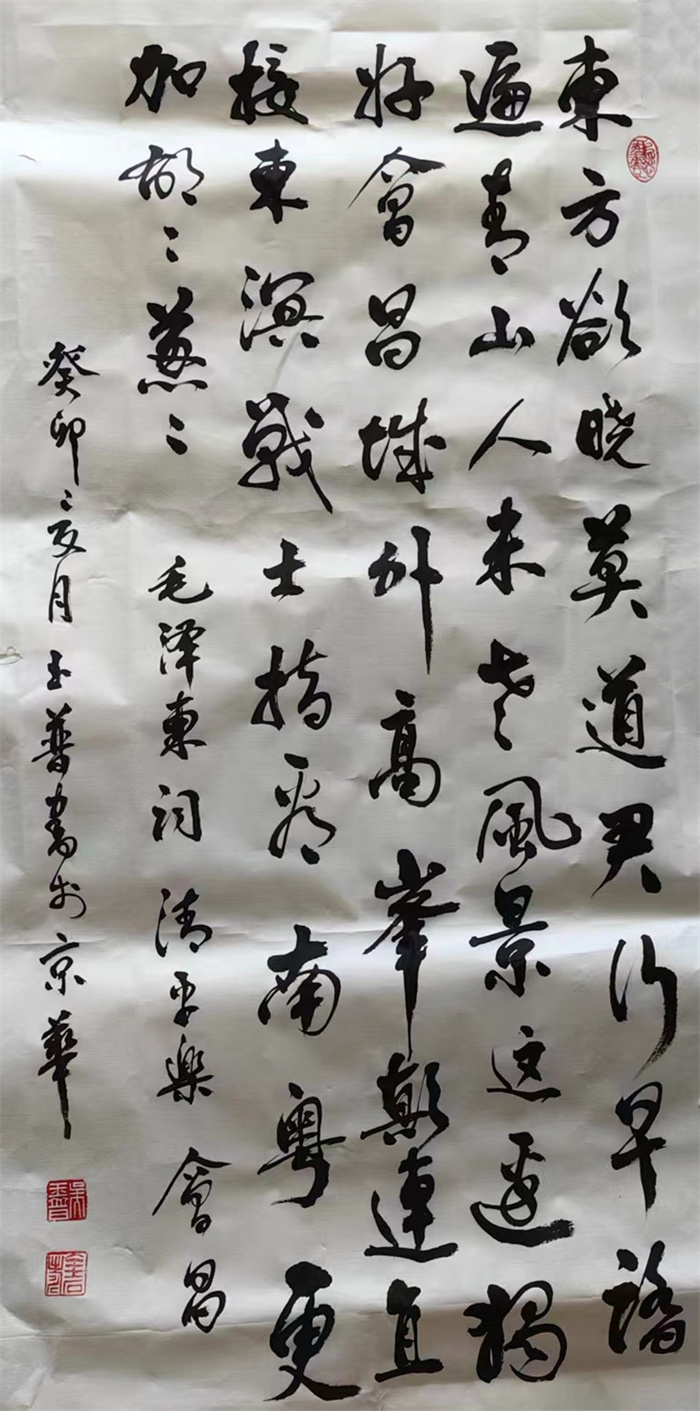 東方欲晓莫道君行早踏
遍青山人未老風景这邊獨
好會昌城外高峯顛連直
接東溟戰士指看南粤更
加郁々蔥々
毛泽東词清平樂 會昌
癸卯之夏月玉普書於京華